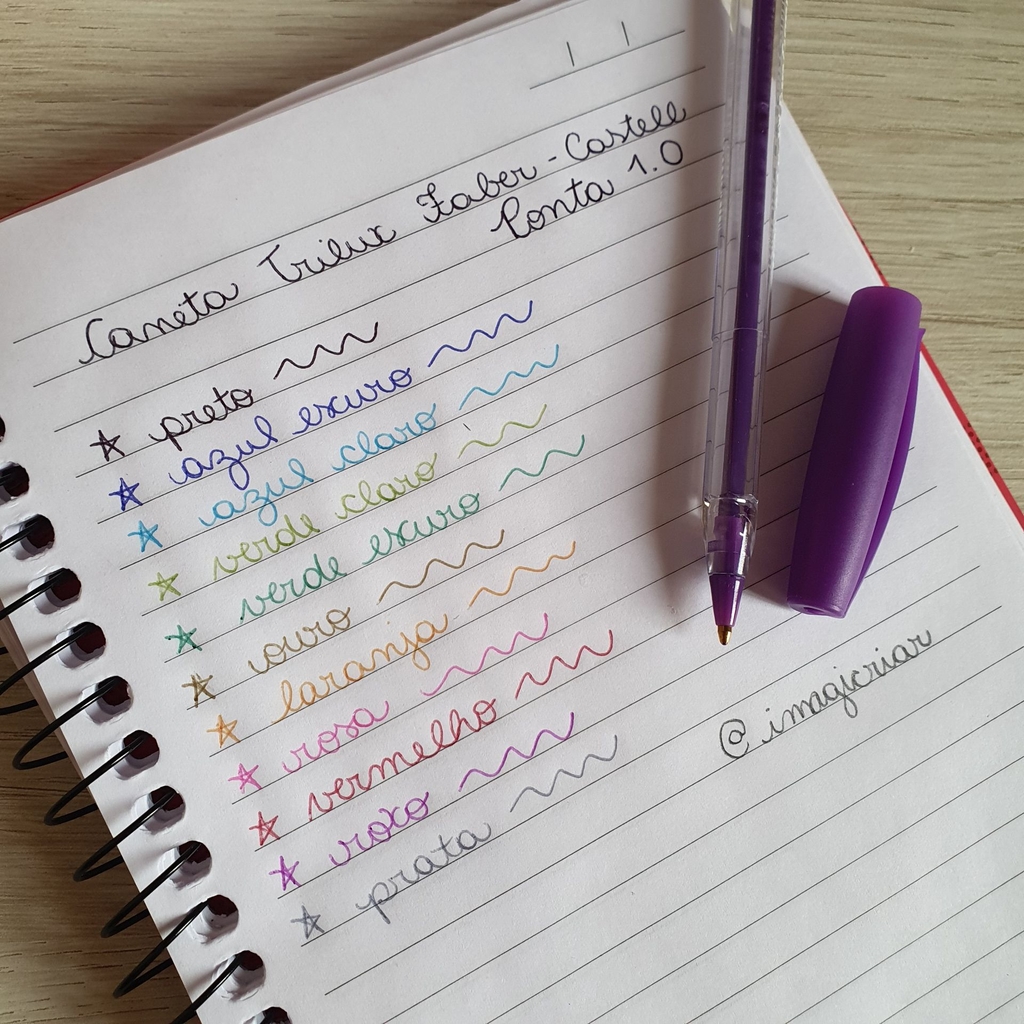 Caneta Trilux Faber-Castell
Ponta 1.0
☆ preto
☆ azul escuro
☆ azul claro
☆ verde claro
☆ verde escuro
☆ ouro
☆ laranja
☆ rosa
☆ vermelho
☆ roxo
☆ prata
@imagicriar